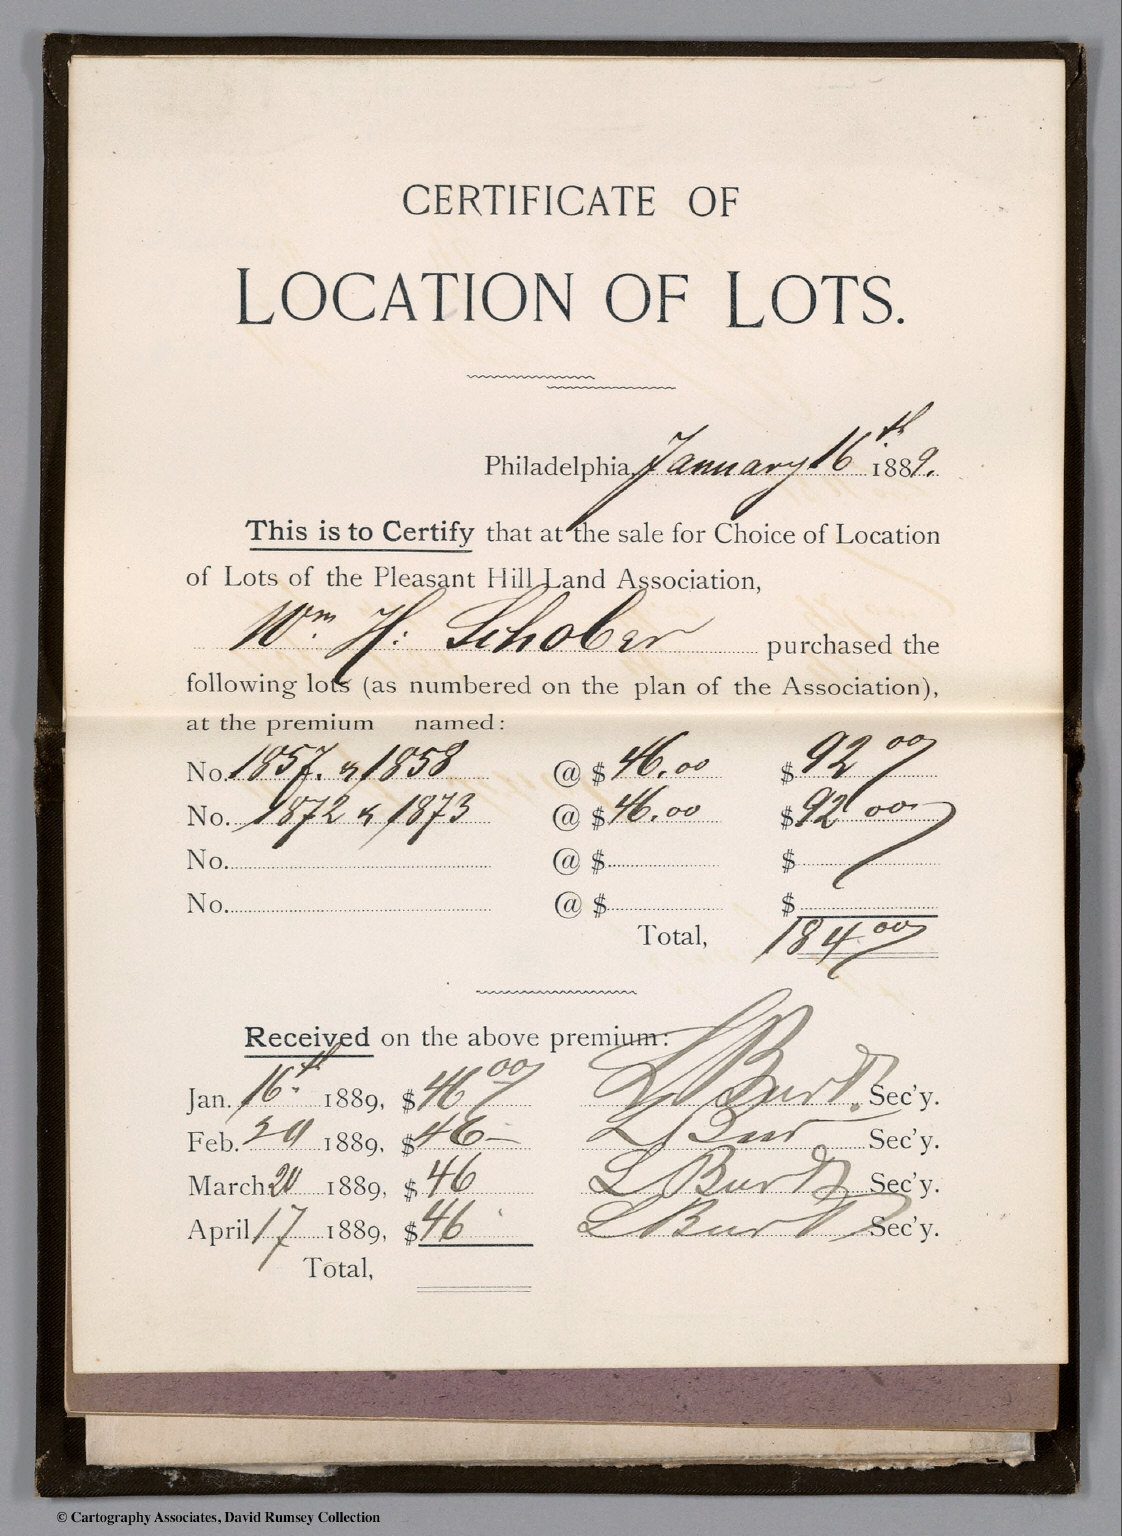 CERTIFICATE OF
LOCATION OF LOTS.
Philadelphia, January 16th 1889.
This is to Certify that at the sale for Choice of Location
of Lots of the Pleasant Hill Land Association,
Wm. H: Schober purchased the
following lots (as numbered on the plan of the Association),
at the premium named:
No. 1857. & 1858 @ $ 46.00 $ 92 00
No. 1872 & 1873 @ $ 46.00 $ 92 00
No. @ $ $
No. @ $ $
Total, 184 00
Received on the above premium:
Jan. 16th 1889, $ 46 00 L Burt. Sec'y.
Feb. 20 1889, $ 46 — L Bur Sec'y.
March 20 1889, $ 46 L Burt Sec'y.
April 17 1889, $ 46 L Burt Sec'y.
Total,
© Cartography Associates, David Rumsey Collection